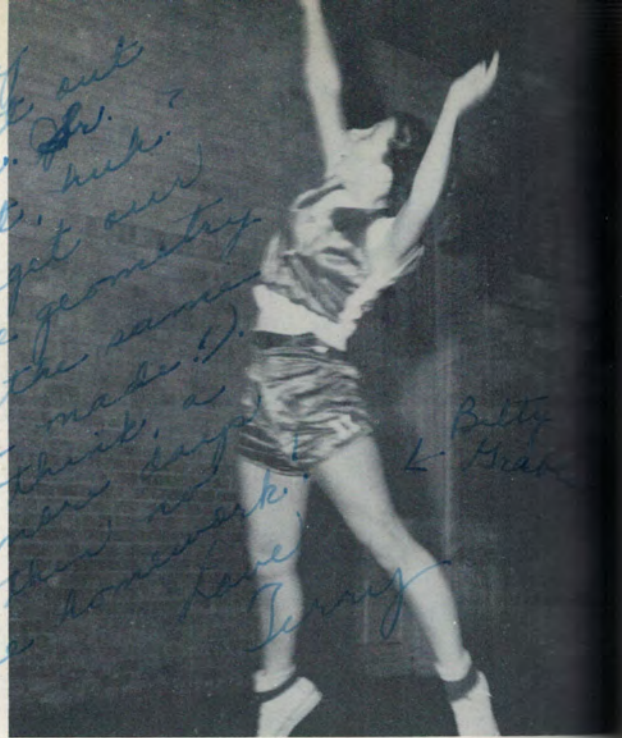 out
Sr.
, huh?
get our
geometry
the same
made!).
think, a
more days
then no
homework!
Love,
Terry
← Betty
Grab